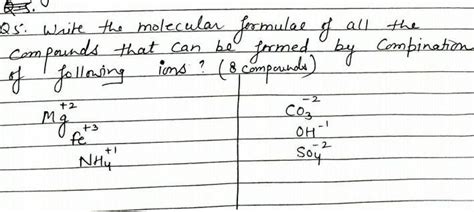 Q5. Write the molecular formulae of all the
compounds that can be formed by Combination
of following ions ? (8 compounds)
Mg+2 CO3-2
fe+3 OH-1
NH4+1 SO4-2